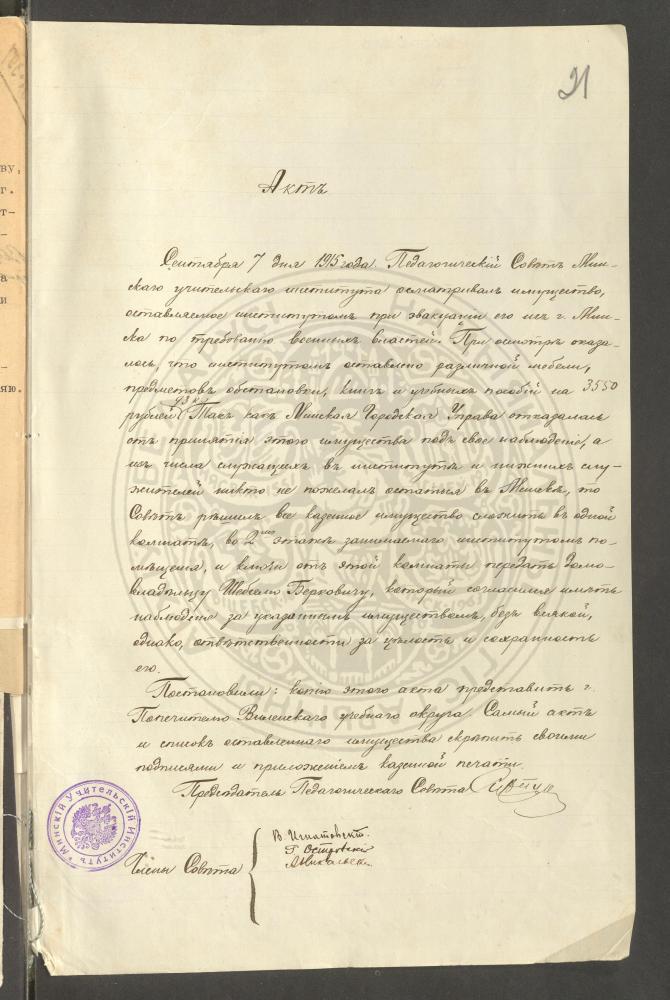 21
Актъ
Сентября 7 дня 1915 года. Педагогическій Совѣтъ Мин-
скаго учительскаго института осматривалъ имущество,
оставляемое институтомъ при эвакуаціи его изъ г. Мин-
ска по требованію военныхъ властей. При осмотрѣ оказа-
лось, что институтомъ оставлено различной мебели,
предметовъ обстановки, книгъ и учебныхъ пособій на 3550
рублей 93 к. Такъ какъ Минская Городская Управа отказалась
отъ принятія этого имущества подъ свое наблюденіе, а
изъ числа служащихъ въ институтѣ и нижнихъ слу-
жителей никто не пожелалъ остаться въ Минскѣ, то
Совѣтъ рѣшилъ все казенное имущество сложить въ одной
комнатѣ, во 2мъ этажѣ занимаемаго институтомъ по-
мѣщенія, и ключи отъ этой комнаты передать домо-
владѣльцу Берковичу, который согласился имѣть
наблюденіе за указаннымъ имуществомъ, безъ всякой,
однако, отвѣтственности за цѣлость и сохранность
его.
Постановили: копію этого акта представить г.
Попечителю Виленскаго учебнаго округа. Самый актъ
и списокъ оставленнаго имущества скрѣпить своими
подписями и приложеніемъ казенной печати.
Предсѣдатель Педагогическаго Совѣта
Члены Совѣта
В Игнатовскі
Г Островскій
Минскій Учительскій Институтъ
ву,
г.
т-
-
а
и
-
яю.